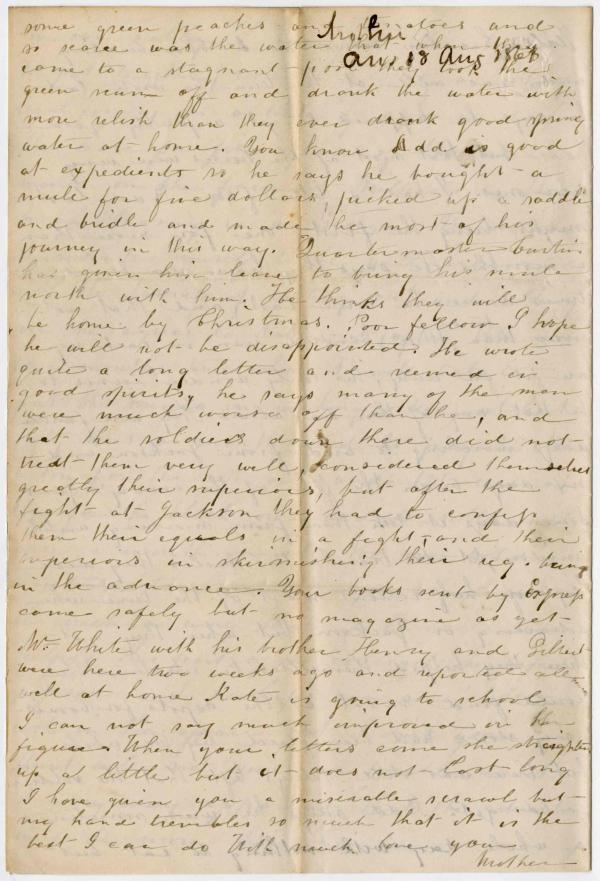 some green peaches and tomatoes and
Mother
Ans 18 Aug 186
so scarce was the water that when they
came to a stagnant pool they took the
green scum off and drank the water with
more relish than they ever drank good spring
water at home. You know Add is good
at expedients so he says he bought a
mule for five dollars, picked up a saddle
and bridle and made the most of his
journey in this way. Quartermaster
has given him leave to bring his mule
north with him. He thinks they will
be home by Christmas. Poor fellow I hope
he will not be disappointed. He wrote
quite a long letter and seemed in
good spirits, he says many of the men
were much worse off than he, and
that the soldiers down there did not
treat them very well, considered themselves
greatly their superiors, but after the
fight at Jackson they had to confess
them their equals in a fight, and their
superiors in skirmishing their reg. being
in the advance. Your books sent by Express
came safely but no magazine as yet
Mr White with his brother Henry and Gilbert
were here two weeks ago and reported all
well at home Kate is going to school
I can not say much improved in her
figure. When your letters come she straightens
up a little but it does not last long
I have given you a miserable scrawl but
my hand trembles so much that it is the
best I can do With much love your
Mother